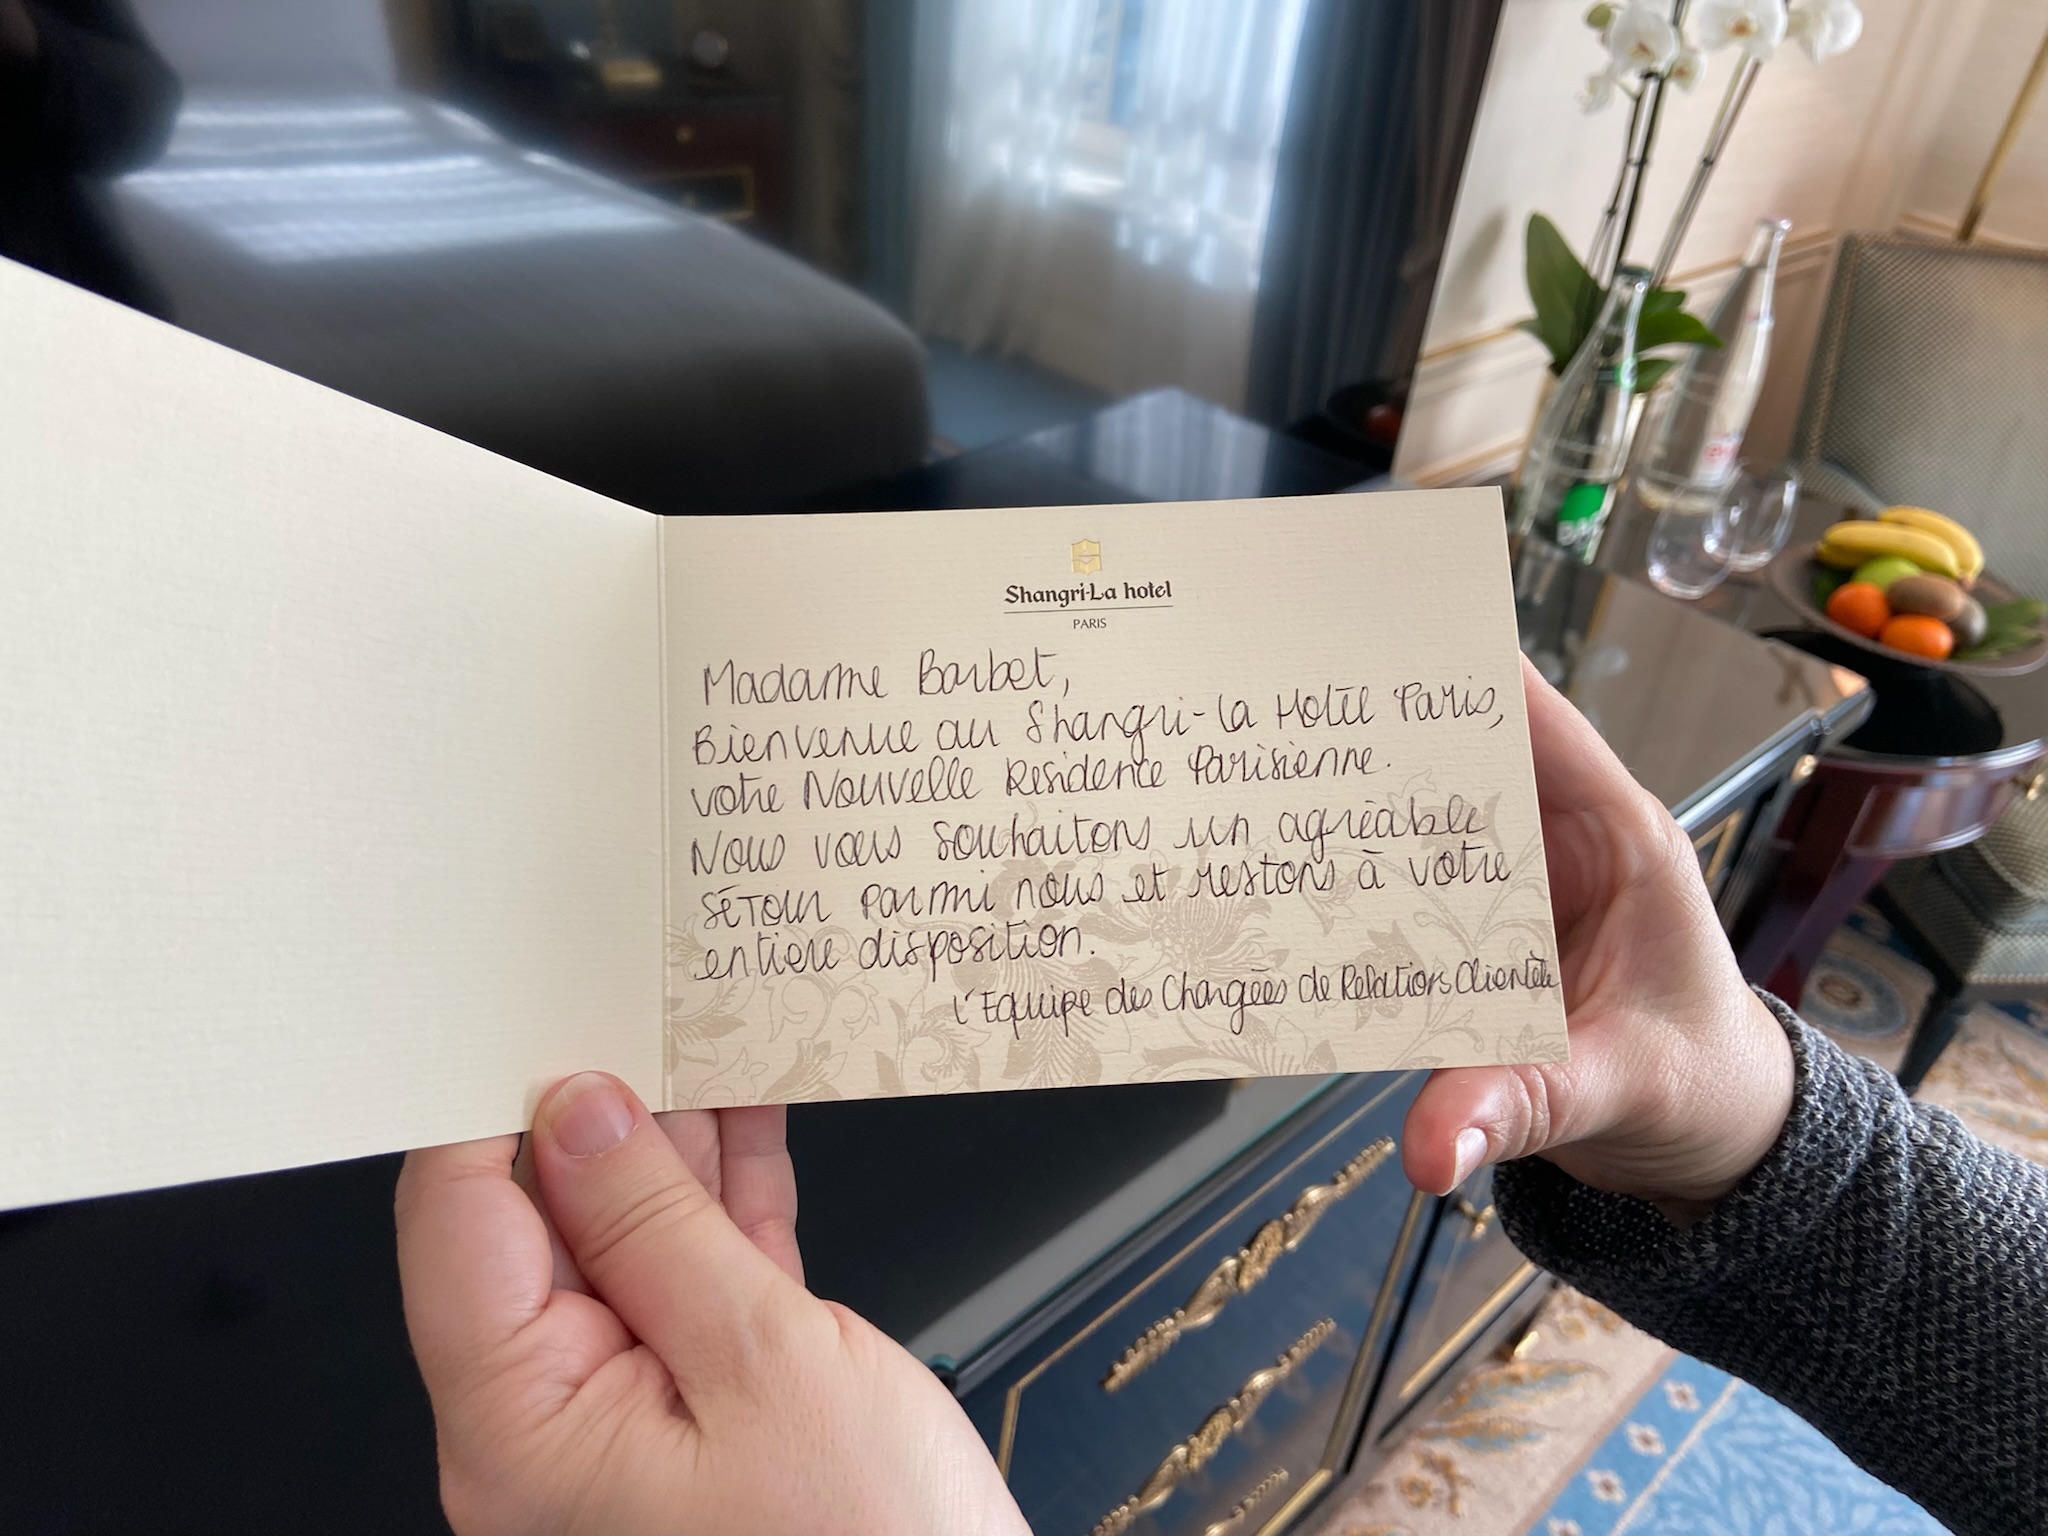 Shangri-La hotel
PARIS
Madame Barbet,
Bienvenue au Shangri-La Hotel Paris,
votre Nouvelle Residence Parisienne.
Nous vous souhaitons un agréable
séjour parmi nous et restons à votre
entiere disposition.
L'Equipe des Chargées de Relations Clientèle